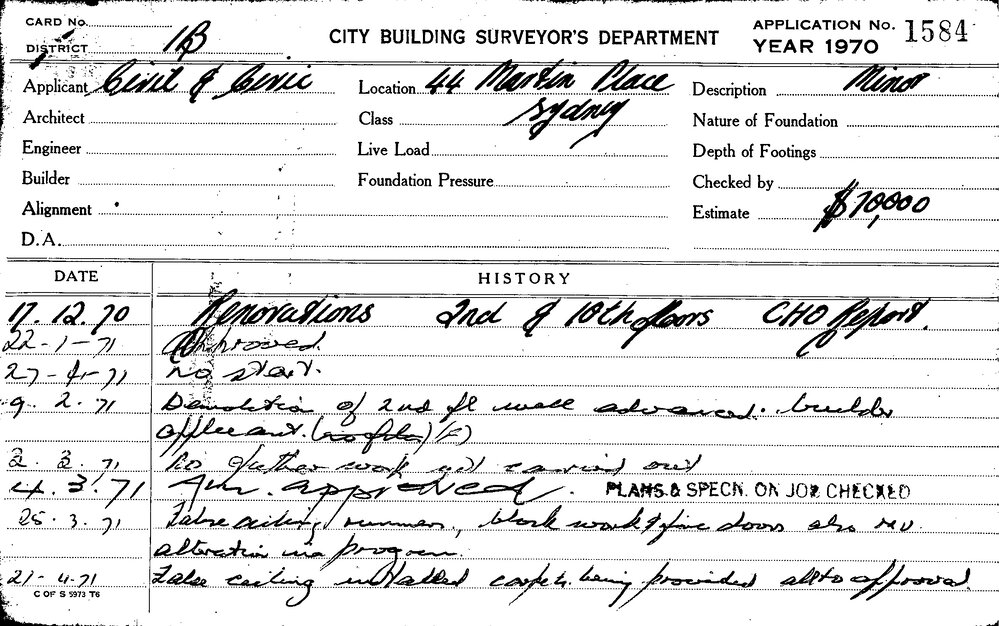 CARD No.
DISTRICT 1B
CITY BUILDING SURVEYOR'S DEPARTMENT
APPLICATION No. 1584
YEAR 1970
Applicant Civil & Civic
Location 44 Martin Place
Description Minor
Architect
Class Sydney
Nature of Foundation
Engineer
Live Load
Depth of Footings
Builder
Foundation Pressure
Checked by
Alignment
Estimate $70,000
D.A.
DATE
HISTORY
17.12.70 Renovations 2nd & 10th floors CHO Report.
22-1-71 Approved.
27-4-71 No start.
9.2.71 Demolition of 2nd fl wall advanced. builder
applicant.
2.3.71 No further work yet carried out
4.3.71 approved. PLANS & SPECN. ON JOB CHECKED
25.3.71 False ceiling runners, block work & fire doors also
alteration in program.
21-4-71 False ceiling installed being provided all to approval
C OF S 5973 T6